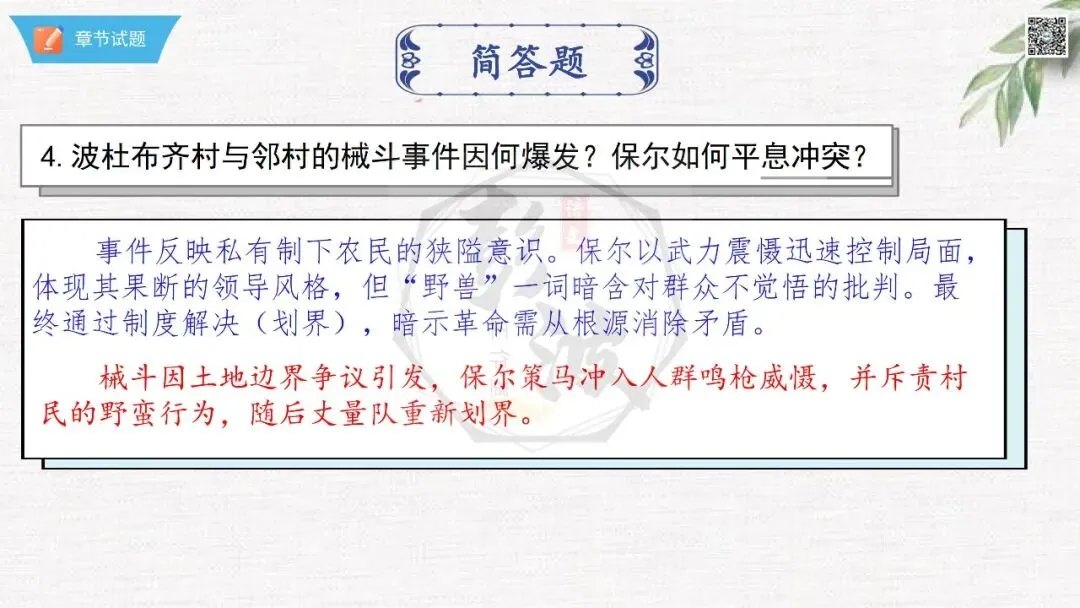 章节试题
简答题
4.波杜布齐村与邻村的械斗事件因何爆发？保尔如何平息冲突？
事件反映私有制下农民的狭隘意识。保尔以武力震慑迅速控制局面，
体现其果断的领导风格，但“野兽”一词暗含对群众不觉悟的批判。最
终通过制度解决（划界），暗示革命需从根源消除矛盾。
械斗因土地边界争议引发，保尔策马冲入人群鸣枪威慑，并斥责村
民的野蛮行为，随后丈量队重新划界。